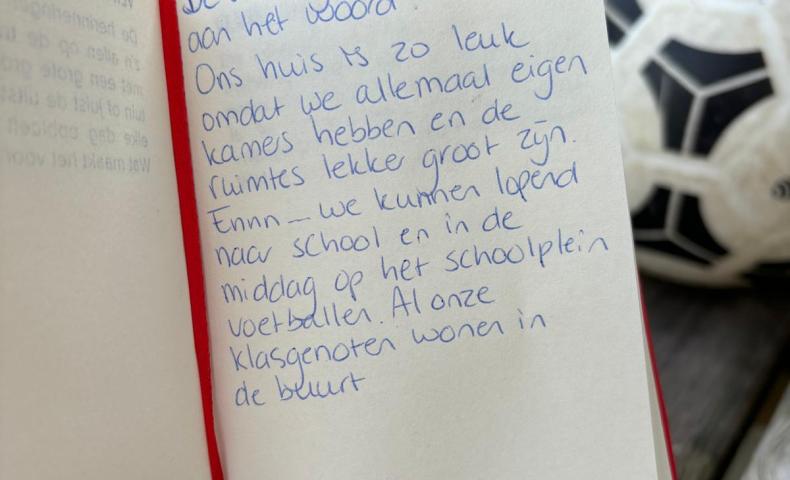 aan het woord.
Ons huis is zo leuk
omdat we allemaal eigen
kamers hebben en de
ruimtes lekker groot zijn.
Ennn — we kunnen lopend
naar school en in de
middag op het schoolplein
voetballen. Al onze
klasgenoten wonen in
de buurt